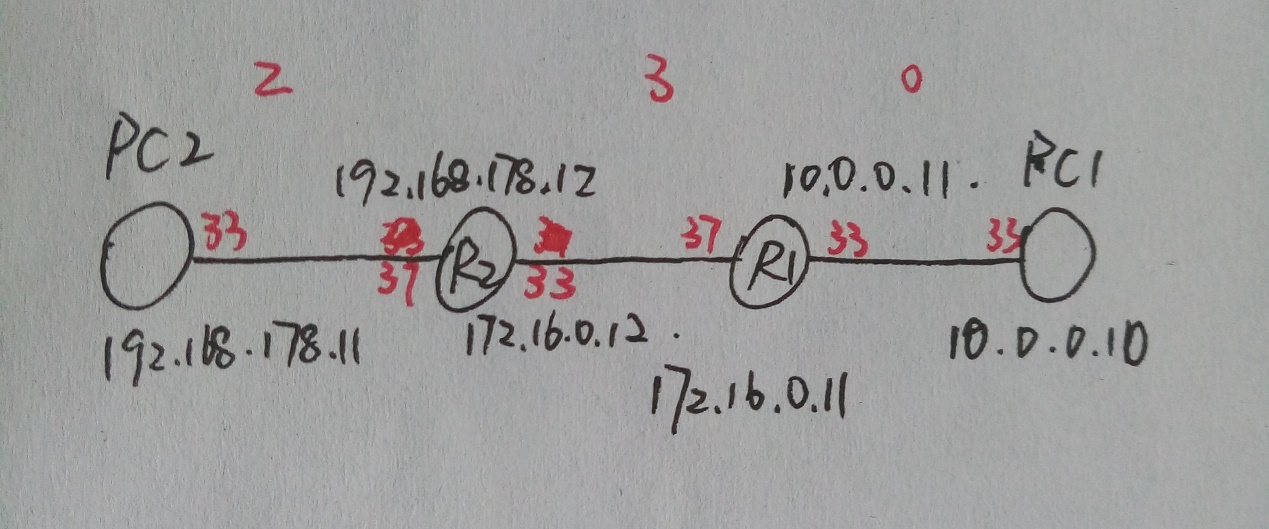 2 3 0
PC2
192.168.178.12
10.0.0.11.
PC1
33 37 33 33
R2 R1
37 33
192.168.178.11
172.16.0.12.
10.0.0.10
172.16.0.11